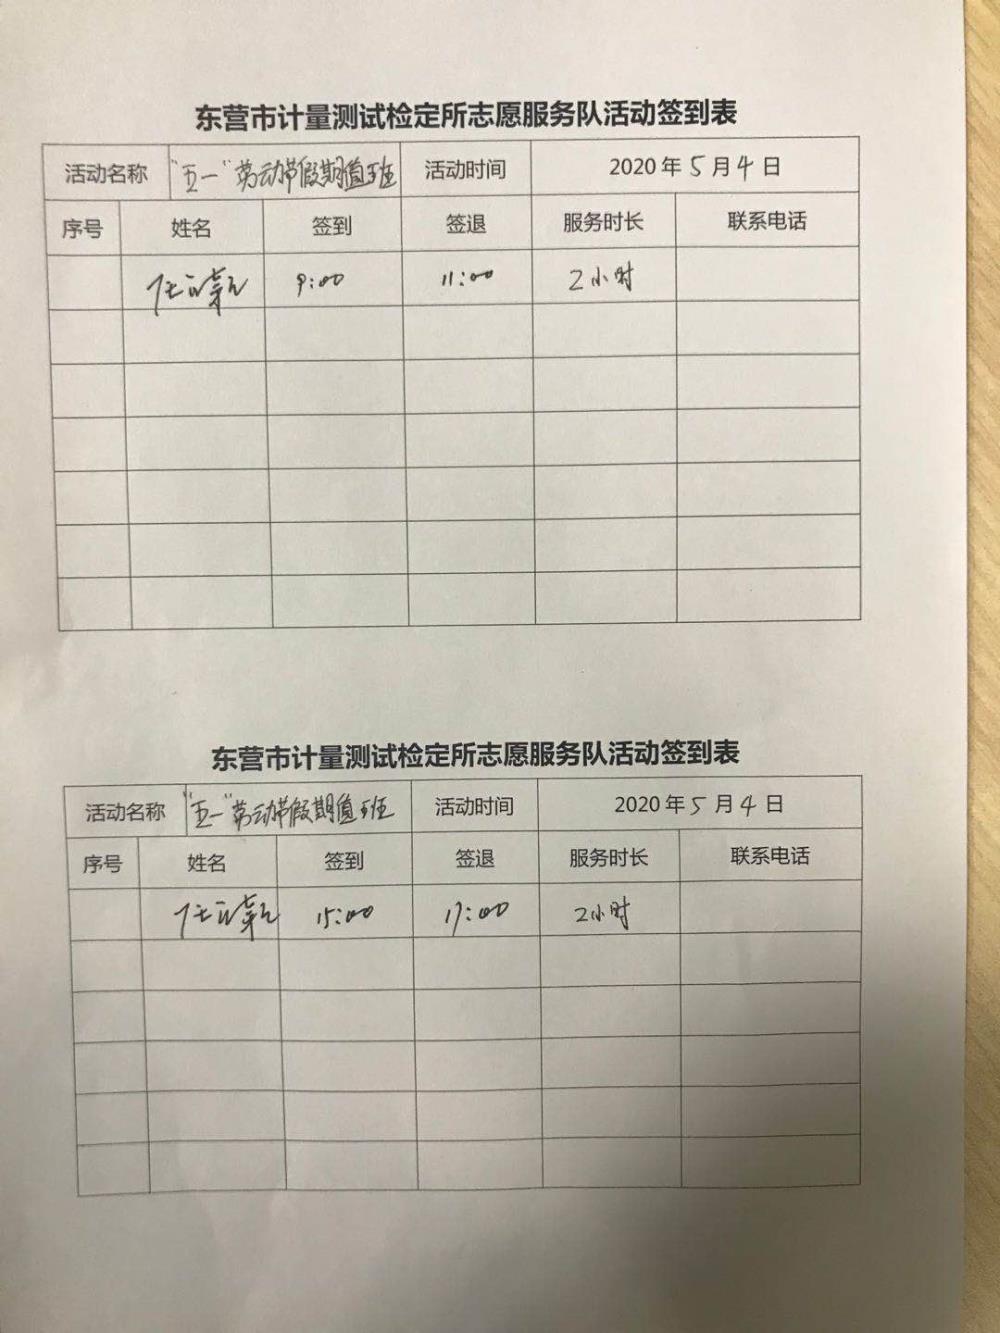 东营市计量测试检定所志愿服务队活动签到表
活动名称 "五一"劳动节假期值班 活动时间 2020年5月4日
序号 姓名 签到 签退 服务时长 联系电话
9:00 11:00 2小时
东营市计量测试检定所志愿服务队活动签到表
活动名称 "五一"劳动节假期值班 活动时间 2020年5月4日
序号 姓名 签到 签退 服务时长 联系电话
15:00 17:00 2小时